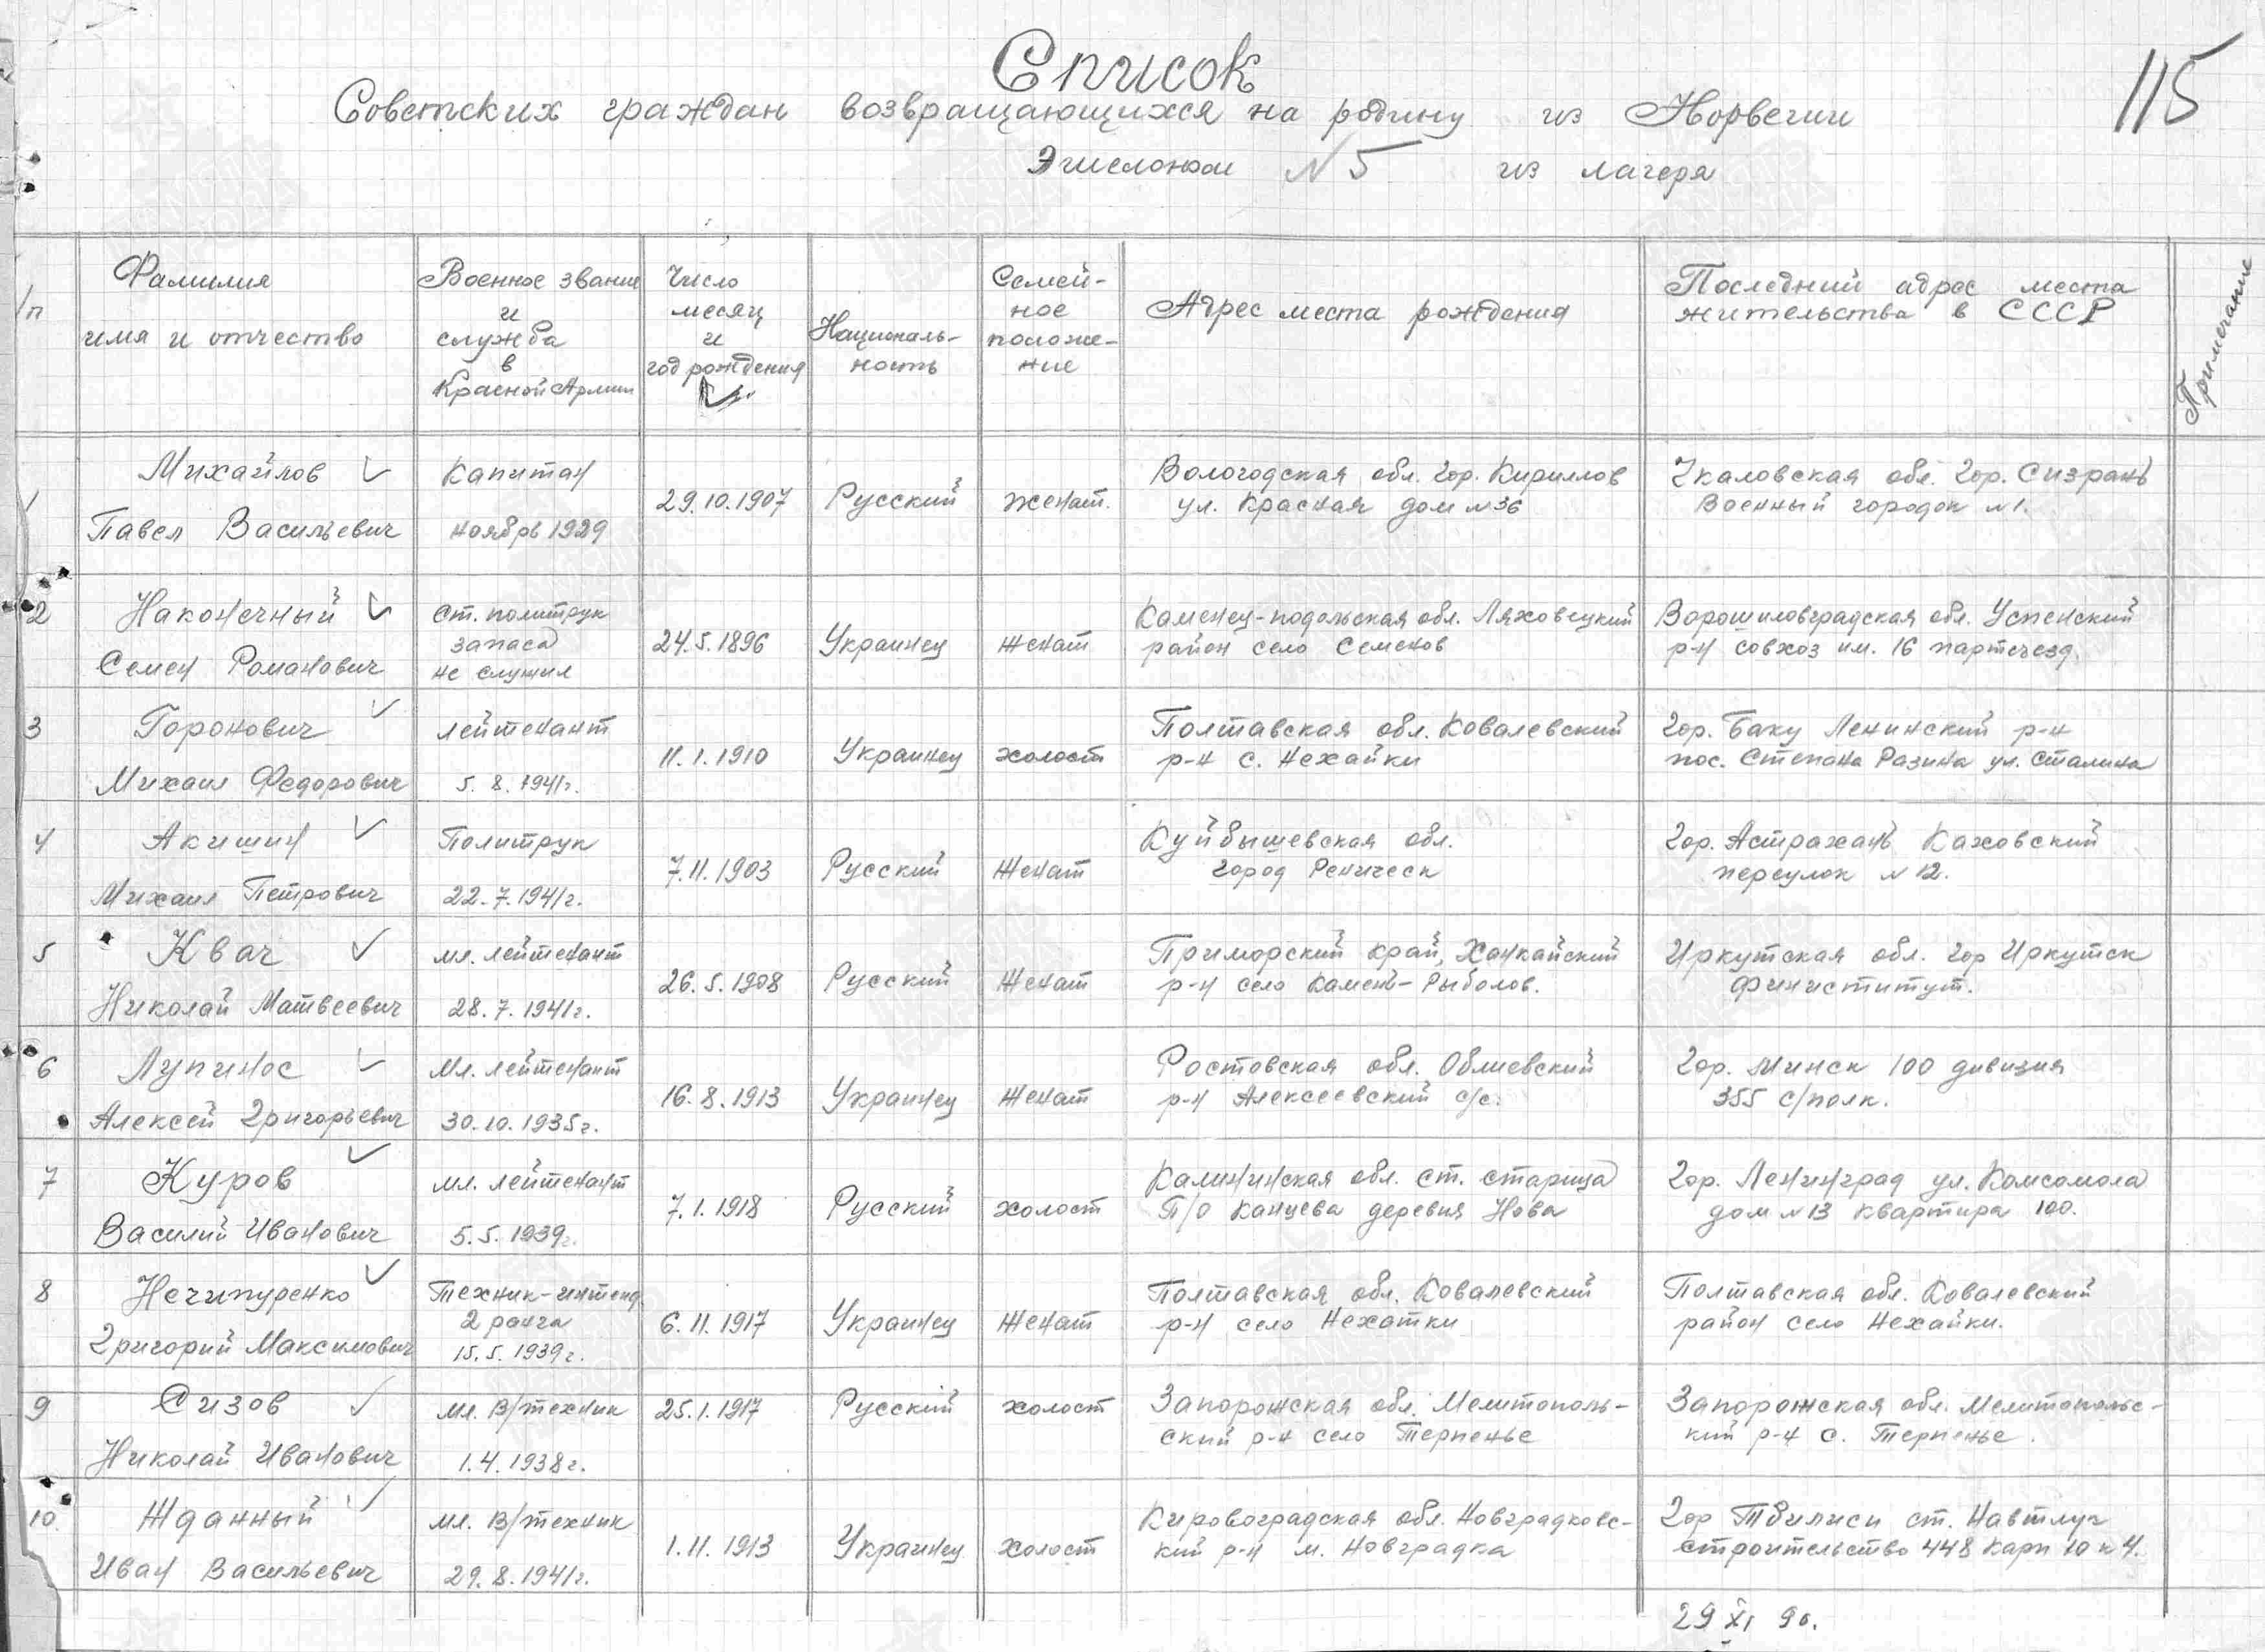 115
Список
Советских граждан возвращающихся на родину из Норвегии
Эшелоном N 5 из лагеря
/п
Фамилия
имя и отчество
Военное звание
и
служба
в
Красной Армии
Число
месяц
и
год рождения
Националь-
ность
Семей-
ное
положе-
ние
Адрес места рождения
Последний адрес места
жительства в СССР
Примечание
1
Михайлов
Павел Васильевич
Капитан
ноябрь 1929
29.10.1907
Русский
женат.
Вологодская обл. гор. Кириллов
ул. Красная дом N 36
Чкаловская обл. гор. Сизрань
Военный городок N 1.
2
Наконечный
Семен Романович
Ст. политрук
запаса
не служил
24.5.1896
Украинец
женат
Каменец-подольская обл. Ляховецкий
район село Семенов
Ворошиловградская обл. Успенский
р-н совхоз им. 16 партсъезд.
3
Горонович
Михаил Федорович
лейтенант
5.8.1941г.
11.1.1910
Украинец
холост
Полтавская обл. Ковалевский
р-н с. Нехайки
гор. Баку Ленинский р-н
пос. Степана Разина ул. Сталина
4
Акишин
Михаил Петрович
Политрук
22.7.1941г.
7.11.1903
Русский
Женат
Куйбышевская обл.
город Реническ
гор. Астрахань Каховский
переулок N 12.
5
Квач
Николай Матвеевич
мл. лейтенант
28.7.1941г.
26.5.1908
Русский
Женат
Приморский край, Ханкайский
р-н село Камень-Рыболов.
Иркутская обл. гор Иркутск
Финиститут.
6
Лупинос
Алексей Григорьевич
Мл. лейтенант
30.10.1935г.
16.8.1913
Украинец
Женат
Ростовская обл. Облиевский
р-н Алексеевский с/с.
гор. Минск 100 дивизия
355 с/полк.
7
Куров
Василий Иванович
мл. лейтенант
5.5.1939г.
7.1.1918
Русский
холост
Калининская обл. ст. старица
П/о Канцева деревня Нова
гор. Ленинград ул. Комсомола
дом N 13 квартира 100.
8
Нечипуренко
Григорий Максимович
Техник-интенд.
2 ранга
15.5.1939г.
6.11.1917
Украинец
Женат
Полтавская обл. Ковалевский
р-н село Нехатки
Полтавская обл. Ковалевский
район село Нехайки.
9
Сизов
Николай Иванович
Мл. В/техник
1.4.1938г.
25.1.1917
Русский
холост
Запорожская обл. Мелитополь-
ский р-н село Терпенье
Запорожская обл. Мелитопольс-
кий р-н с. Терпенье.
10.
Жданный
Иван Васильевич
Мл. В/техник
29.8.1941г.
1.11.1913
Украинец
холост
Кировоградская обл. Новградковс-
кий р-н м. Новградка
гор Тбилиси ст. Навтлуг
строительство 448 карп 10 к 4.
29 XI 90.